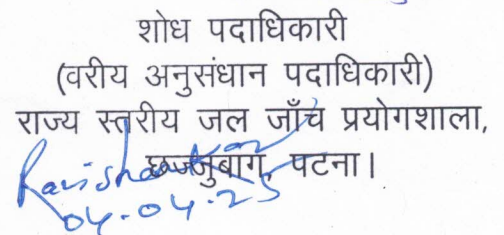 शोध पदाधिकारी
(वरीय अनुसंधान पदाधिकारी)
राज्य स्तरीय जल जाँच प्रयोगशाला,
छज्जुबाग, पटना।
04-04-25